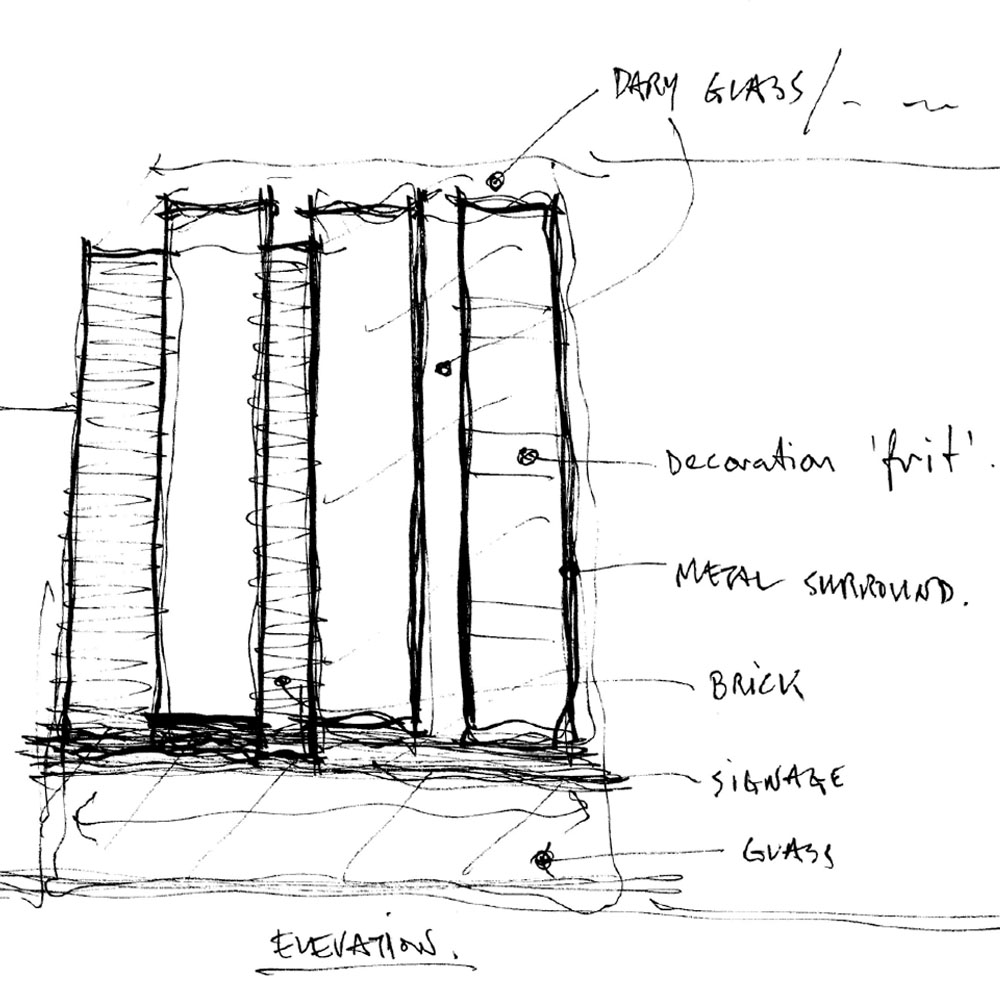 DARK GLASS/
Decoration 'frit'.
METAL SURROUND.
BRICK
SIGNAGE
GLASS
ELEVATION.